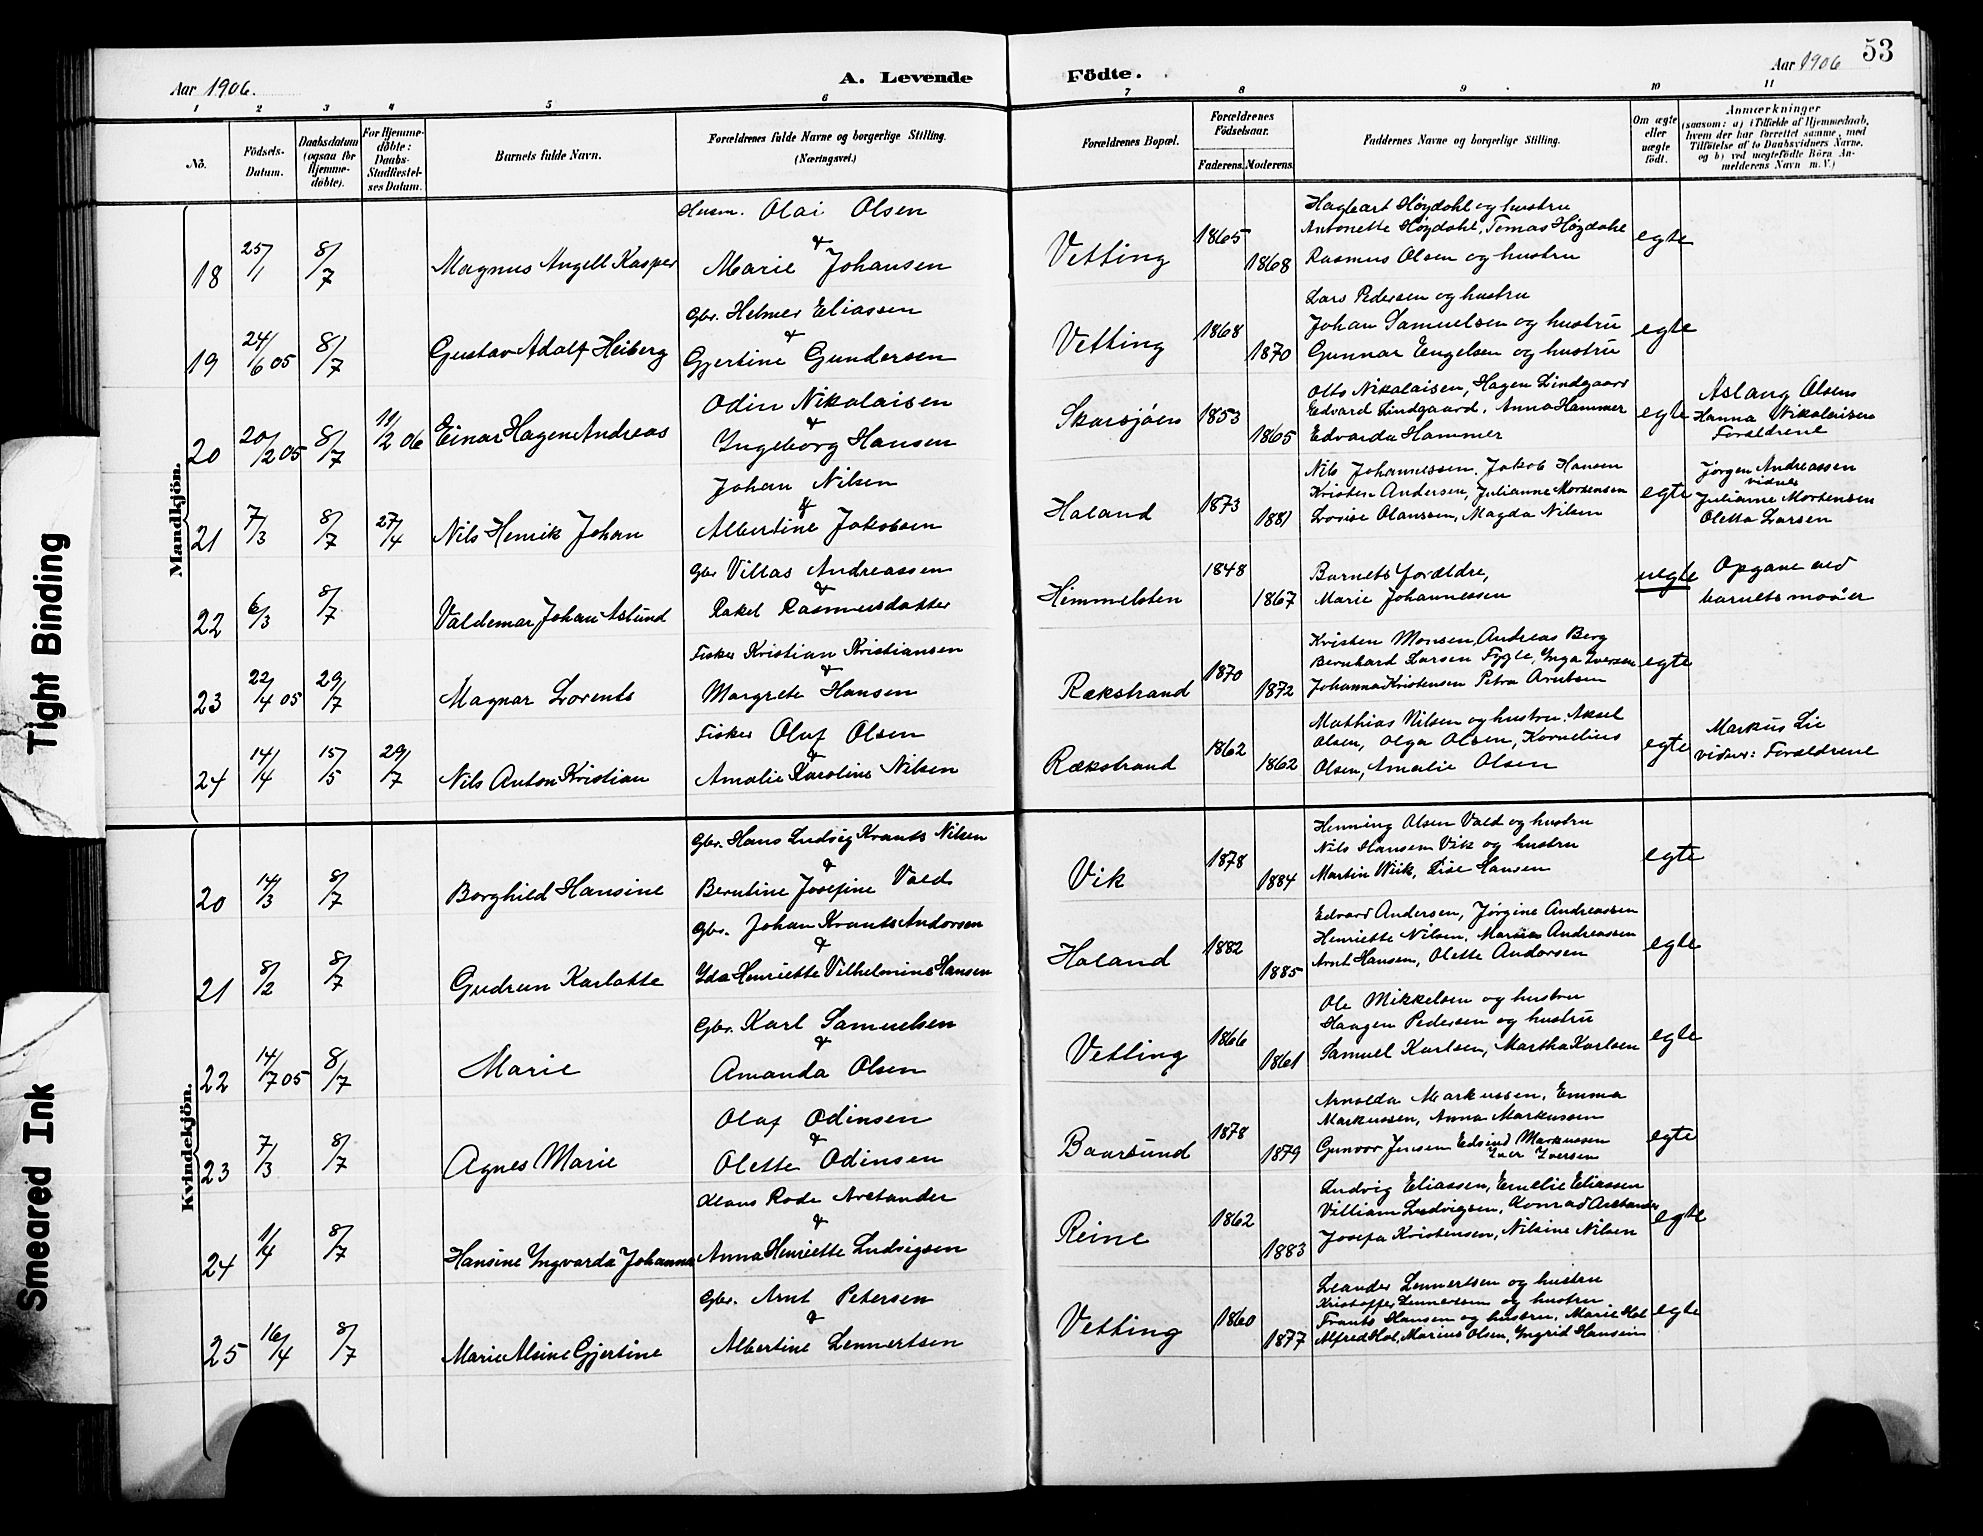 Aar 1906.
A. Levende
Födte.
Aar 1906
53
1 2 3 4 5 6 7 8 9 10 11
No.
Födsels-Datum.
Daabsdatum (ogsaa for Hjemme-döbte).
For Hjemme-döbte: Daabs-Stadfæstel-ses Datum.
Barnets fulde Navn.
Forældrenes fulde Navne og borgerlige Stilling.
(Næringsvei.)
Forældrenes Bopæl.
Forældrenes Födselsaar.
Faderens. Moderens.
Faddernes Navne og borgerlige Stilling.
Om ægte eller uægte födt.
Anmærkninger
(saasom: a) i Tilfælde af Hjemmedaab, hvem der har forrettet samme, med Tilföielse af to Daabsvidners Navne, og b) ved uægtefödte Börn An-melderens Navn m. V.)
Mandkjön.
Husm. Olai Olsen
&
18 25/1 8/7 Magnus Angell Kasper Marie Johansen Vetting 1865 1868
Hagbart Høydahl og hustru
Antonette Høgdahl, Tomas Høgdahl
Rasmus Olsen og hustru
egte
Gbr. Helmer Eliassen
&
19 24/6 05 8/7 Gustav Adolf Heiberg Gjertine Gundersen Vetting 1868 1870
Lars Pedersen og hustru
Johan Samuelsen og hustru
Gunnar Engelsen og hustru
egte
Odin Nikolaisen
&
20 20/2 05 8/7 11/2 06 Einar Hagen Andreas Ingeborg Hansen Skarsjøen 1853 1865
Otto Nikolaisen, Hagen Lindgaard
Edvard Lindgaard, Anna Hammer
Edvarda Hammer
egte
Aslaug Olsen
Hanna Nikolaisen
Forældrene
Johan Nilsen
&
21 7/3 8/7 27/4 Nils Henrik Johan Albertine Jakobsen Haland 1873 1881
Nils Johannessen, Jakob Hansen
Kristen Andersen, Julianne Mortensen
Lovise Olanssen, Magda Nilsen
egte
Jørgen Andreassen
vidner
Julianne Mortensen
Oletta Larsen
Gbr Villas Andreassen
&
22 6/3 8/7 Valdemar Johan Aslund Rakel Rasmusdatter Himmelsten 1848 1867
Barnets forældre,
Marie Johannessen
uegte
Opgave ved
barnets moder
Fisker Kristian Kristiansen
&
23 22/4 05 29/7 Magnar Lorents Margrete Hansen Rækstrand 1870 1872
Kristen Monsen, Andreas Berg
Bernhard Larsen Fygle, Inga Iversen
Johanna Kristensen Petra Arntsen
egte
Fisker Oluf Olsen
&
24 14/4 15/5 29/7 Nils Anton Kristian Amalie Karoline Nilsen Rækstrand 1862 1862
Mathias Nilsen og hustru. Aksel
Olsen, Olga Olsen, Kornelius
Olsen, Amalie Olsen
egte
Markus Lie
vidner: Forældrene
Kvindekjön.
Gbr. Hans Ludvig Krants Nilsen
&
20 14/3 8/7 Borghild Hansine Berntine Josefine Vald Vik 1878 1884
Henning Olsen Vald og hustru
Nils Hansen Vik og hustru
Martin Wiik, Lise Hansen
egte
Gbr. Johan Krants Andorsen
&
21 8/2 8/7 Gudrun Karlotte Ida Henriette Vilhelmine Hansen Haland 1882 1885
Edvard Andersen, Jørgine Andreassen
Henriette Nilsen, Maria Andreassen
Arnt Hansen, Olette Andorsen
egte
Gbr. Karl Samuelsen
&
22 14/7 05 8/7 Marie Amanda Olsen Vetting 1866 1861
Ole Mikkelsen og hustru
Haagen Pedersen og hustru
Samuel Karlsen, Martha Karlsen
egte
Olaf Odinsen
&
23 7/3 8/7 Agnes Marie Olette Odinsen Baarsund 1878 1879
Arnolda Markussen, Emma
Markussen, Anna Markussen
Gunvor Jensen Markussen
Iver Iversen
egte
Klaus Rode Arctander
&
24 1/4 8/7 Hansine Yngvarda Johanna Anna Henriette Ludvigsen Reine 1862 1883
Ludvig Eliassen, Emelie Eliassen
Villiam Ludvigsen, Konrad Arctander
Josefa Kristensen, Nilsine Nilsen
egte
Gbr. Arnt Petersen
&
25 16/4 8/7 Marie Alsine Gjertine Albertine Lennertsen Vetting 1860 1877
Leander Lennertsen og hustru
Kristoffer Lennertsen og hustru
Frants Hansen og hustru, Marie Hol
Alfred Hol, Marius Olsen, Yngrid Hansen
egte
Tight Binding
Smeared Ink